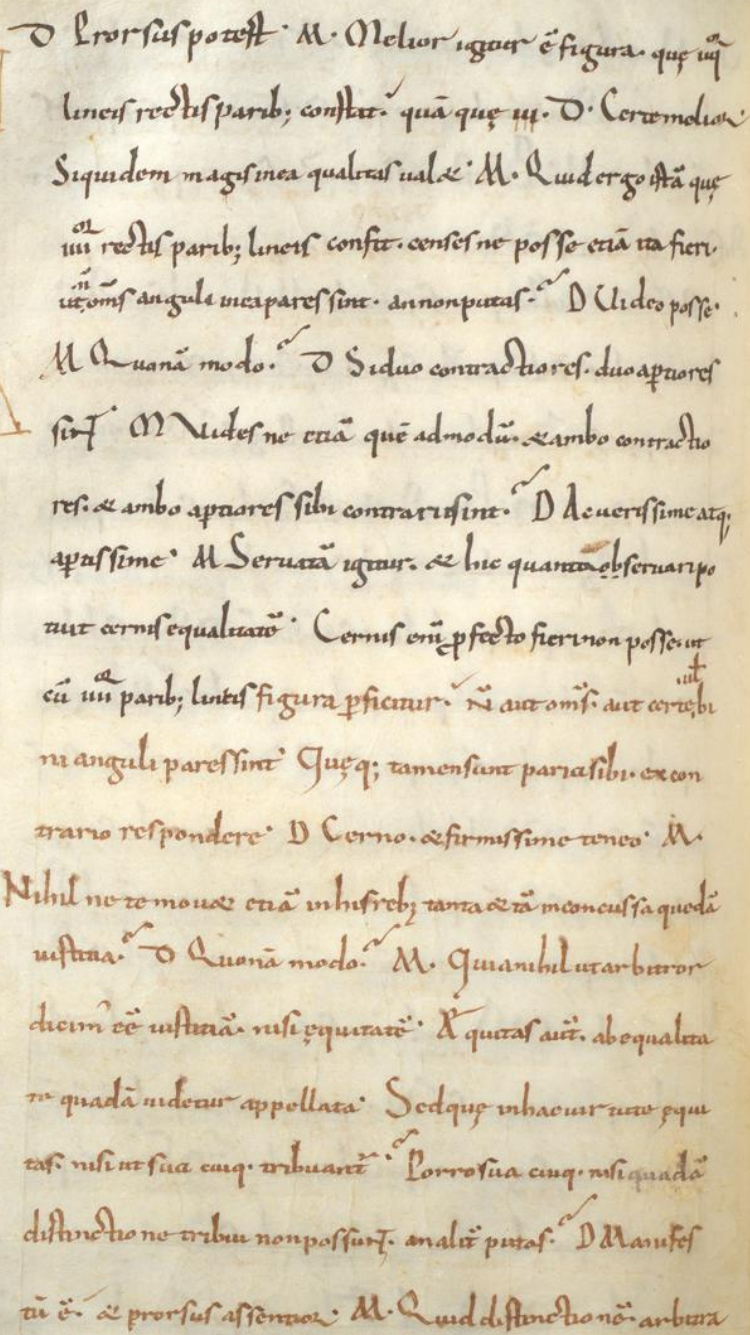 D Prorsus potest · M · Melior igitur ē figura · quę iiii
lineis rectis parib; constat · quā quę iii · D · Certe melior
Siquidem magis in ea qualitas ualet · M · Quid ergo istā quę
iiii rectis parib; lineis confit · censes ne posse etiā ita fieri ·
ut oms anguli in ea pares sint · an non putas · D Uideo posse ·
M Quonā modo · D Si duo contractiores · duo aptiores
sint M Uides ne etiā quē ad modū · et ambo contractio
res · et ambo aptiores sibi contrarii sint · D Ac uerissime atq;
aptissime · M Seruatā igitur · et hic quanta obseruari po
tuit cernis equalitatē · Cernis enī ꝓfecto fieri non posse · ut
cū iiii parib; lineis figura ꝑficitur · N̄ aut om̄s · aut certe bi
ni anguli pares sint · Quęq; tamen sunt paria sibi · ex con
trario respondere · D Cerno · et firmissime teneo · M ·
Nihil ne te mouet etiā in his reb; tanta et tā inconcussa quedā
iustitia · D Quonā modo · M · Quia nihil ut arbitror
dicim' eē iustitiā · nisi ęquitatē · Aequitas aūt · ab equalita
te quadā uidetur appellata · Sed quę in hac uirtute ęqui
tas · nisi ut sua cuiq · tribuant · Porro sua cuiq · nisi quadā
distinctione tribui non possunt · an alit putas · D Manifes
tū ē · et prorsus assentior · M · Quid distinctionē · arbitra